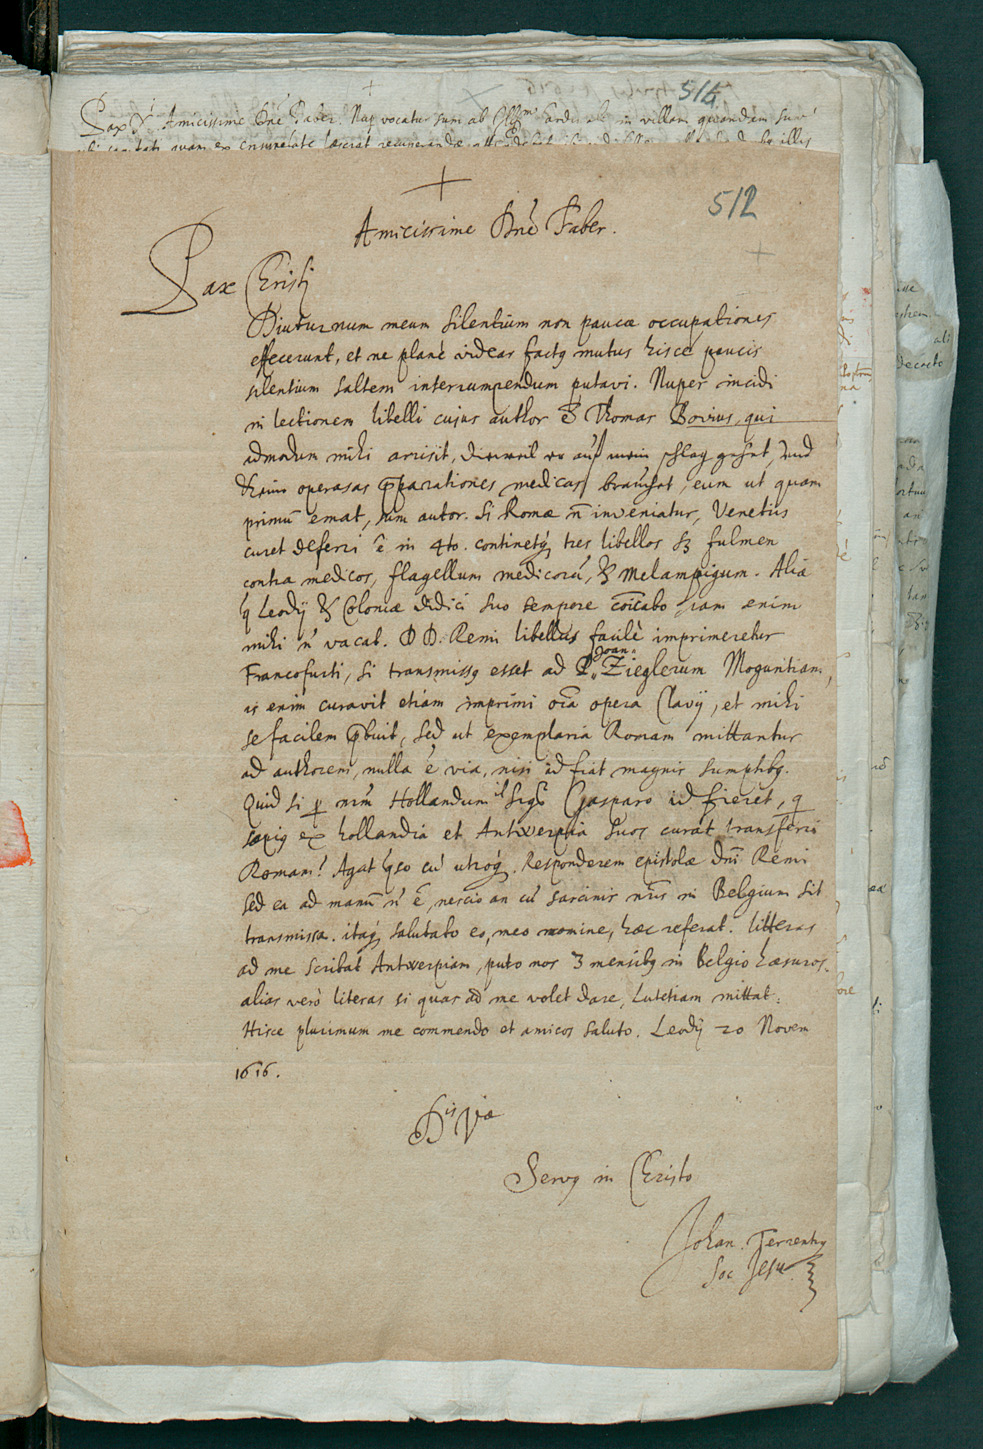 515
Pax Xi Amicissime Dne Faber. Nup vocatus sum ab Illmo Cardinale in villam quandam suā
512
Amicissime Dnē Faber.
Pax Christi
Diuturnum meum silentium non paucæ occupationes
effecerunt, et ne planè videar fact9 mutus hisce paucis
silentium saltem interrumpendum putavi. Nuper incidi
in lectionem libelli cujus author ē Thomas Bovius, qui
admodum mihi arrisit, dieweil er auf mein schlag gehet, und
keine operosas p̄parationes medicas brauchet, eum ut quam
primū emat, sum autor. Si Romæ ñ inveniatur, Venetiis
curet deferri ē in 4to. continetq3 tres libellos s3 fulmen
contra medicos, flagellum medicorū, & Melampigum. Alia
q Leodij & Coloniæ didici suo tempore cōicabo jam enim
mihi ñ vacat. D D. Remi libellus facilè imprimeretur
Francofurti, si transmiss9 esset ad P. Joan. Zieglerum Moguntiam,
is enim curavit etiam imprimi oīa opera Clavij, et mihi
se facilem p̄buit, sed ut exemplaria Romam mittantur
ad authorem, nulla ē via, nisi id fiat magnis sumptib9.
Quid si p nrm̄ Hollandum il Sigr Gasparo id fieret, q
sæpi9 ex hollandia et Antwerpia suos curat transferri
Romam? Agat qso cū utroq3. Responderem epistolæ dni Remi
sed ea ad manū ñ ē, nescio an cū sarcinis nris in Belgium sit
transmissa. itaq3 salutato eo, meo nomine, hæc referat. litteras
ad me scribat Antwerpiam, puto nos 3 mensib9 in Belgio hæsuros.
alias verò literas si quas ad me volet dare, Lutetiam mittat.
Hisce plurimum me commendo et amicos saluto. Leodij 20 Novem
1616.
Dis Væ
Serv9 in Christo
Johan. Terrenti9
Soc Jesu.